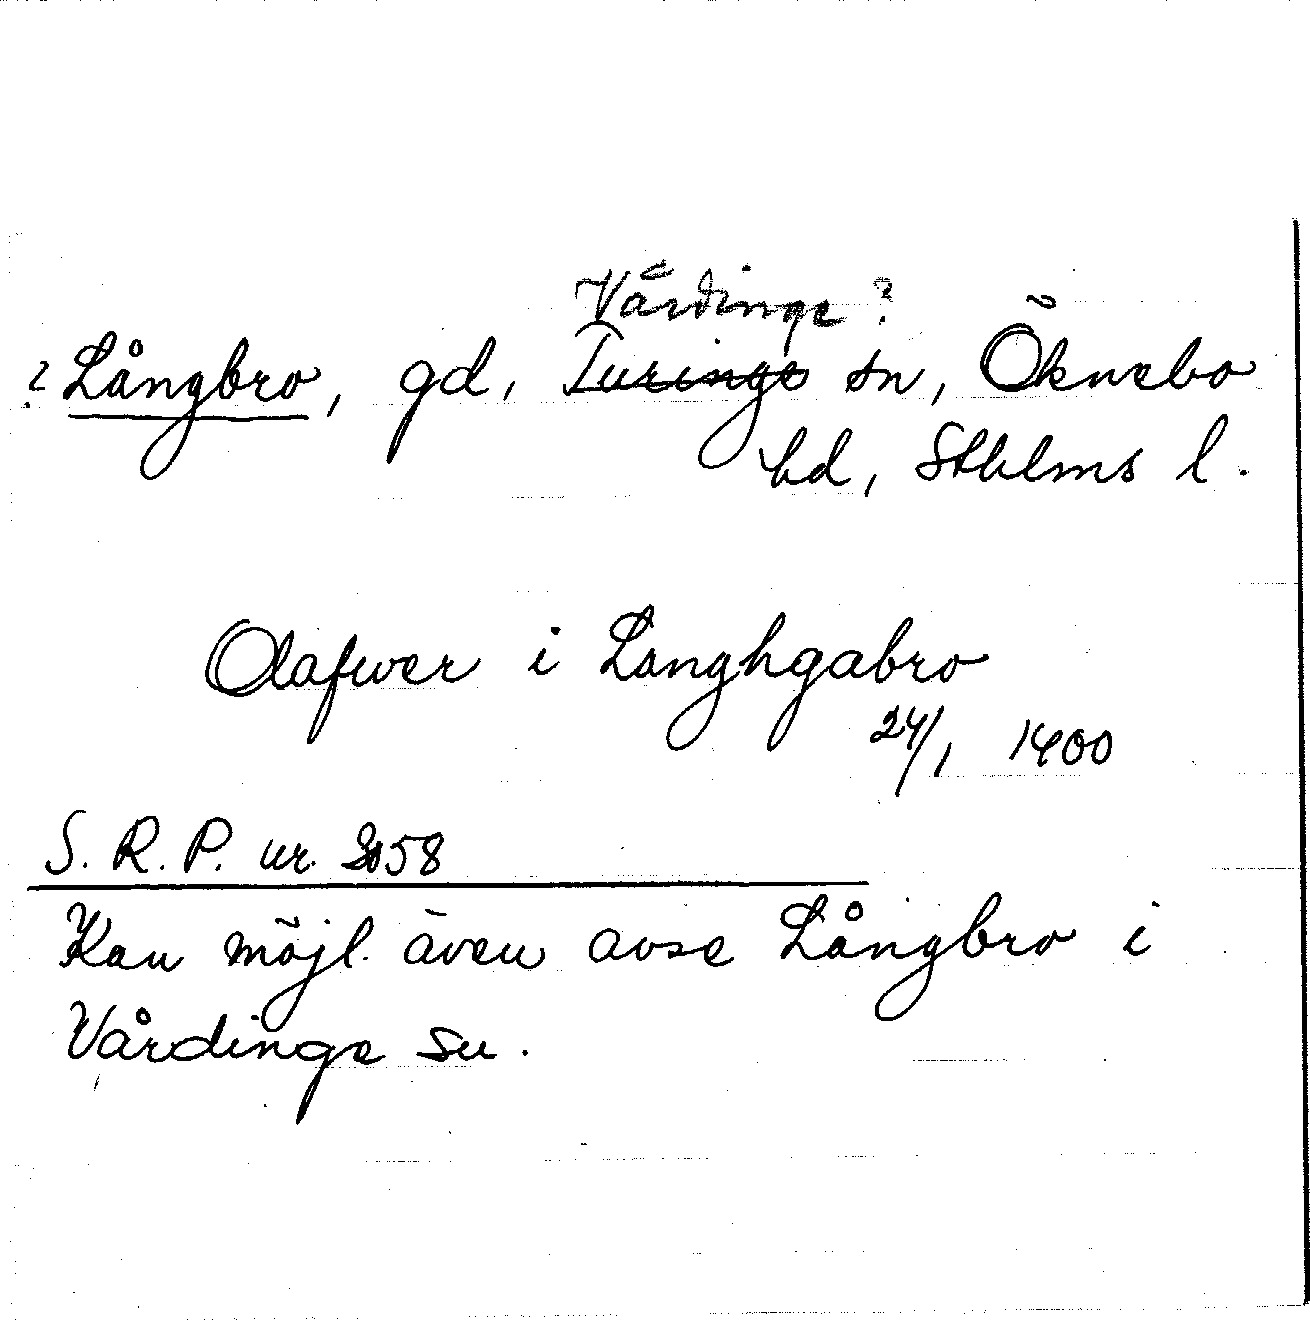 Vårdinge?
? Långbro, gd, Turinge sn, Öknebo
hd, Sthlms l.
Olafwer i Langhgabro
24/1 1400
S. R. P. nr. 3058
Kan möjl. även avse Långbro i
Vårdinge sn.